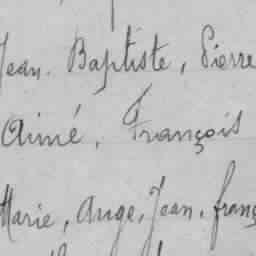 Jean. Baptiste, Pierre
Aimé, François
Marie, Ange, Jean, franç